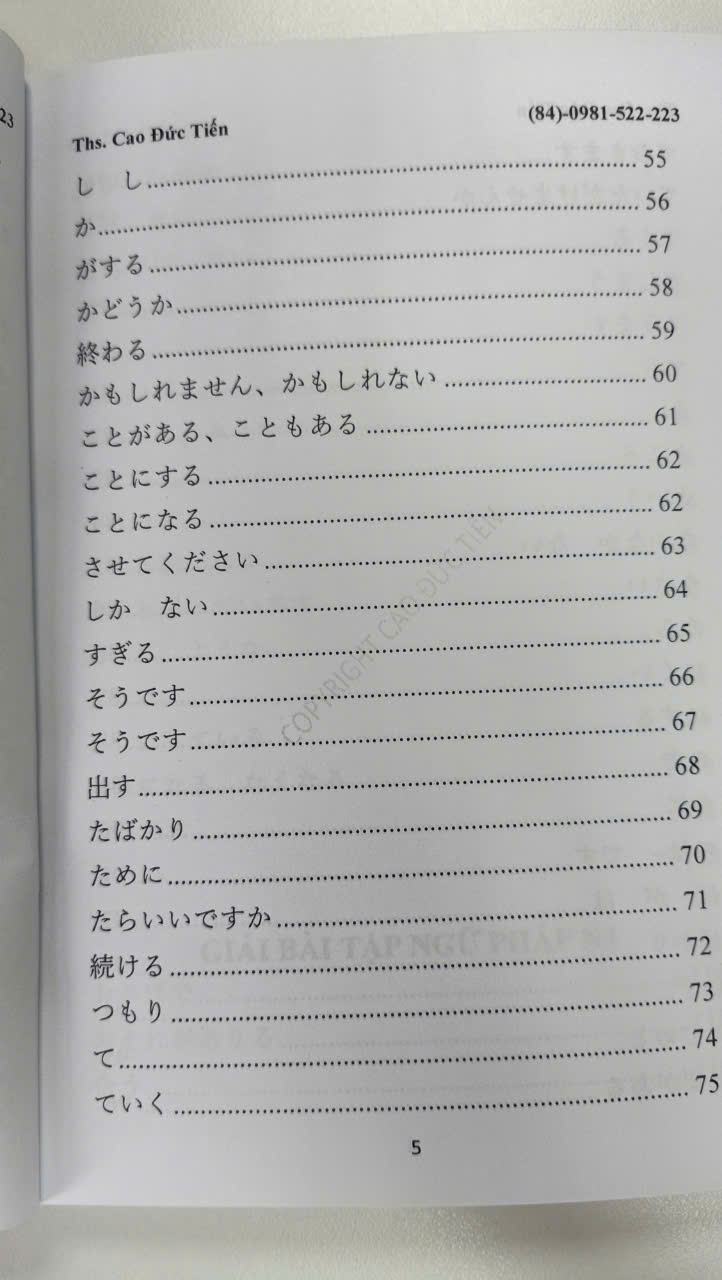 23
Ths. Cao Đức Tiến (84)-0981-522-223
し し........................................ 55
か........................................ 56
がする........................................ 57
かどうか........................................ 58
終わる........................................ 59
かもしれません、かもしれない........................................ 60
ことがある、こともある........................................ 61
ことにする........................................ 62
ことになる........................................ 62
させてください........................................ 63
しか ない........................................ 64
すぎる........................................ 65
そうです........................................ 66
そうです........................................ 67
出す........................................ 68
たばかり........................................ 69
ために........................................ 70
たらいいですか........................................ 71
続ける........................................ 72
つもり........................................ 73
て........................................ 74
ていく........................................ 75
COPYRIGHT CAO ĐỨC TIẾN
GIẢI BÀI TẬP NGỮ PHÁP
5